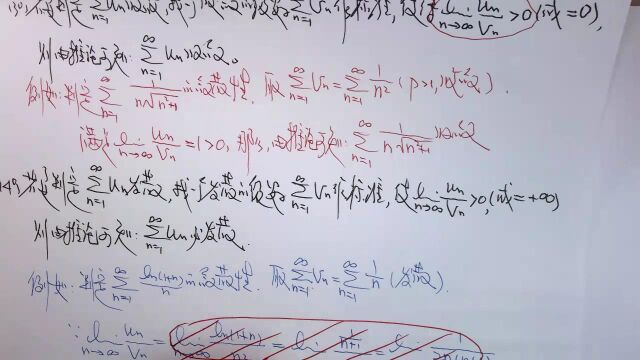 判定∑_{n=1}^{∞} Un收敛,找一个收敛级数∑_{n=1}^{∞} Vn作标准,使得 lim_{n→∞} Un/Vn >0(或=0),
则由推论可知:∑_{n=1}^{∞} Un收敛。
例如:判定∑_{n=1}^{∞} 1/(n√(n²+1)) 的敛散性. 取∑_{n=1}^{∞} Vn=∑_{n=1}^{∞} 1/n² (p>1,收敛).
满足 lim_{n→∞} Un/Vn =1>0, 那么,由推论可知:∑_{n=1}^{∞} 1/(n√(n²+1)) 收敛
若判定∑_{n=1}^{∞} Un发散,找一个发散的级数∑_{n=1}^{∞} Vn作标准,使 lim_{n→∞} Un/Vn >0,(或=+∞)
则由推论可知:∑_{n=1}^{∞} Un 必发散.
例如:判定∑_{n=1}^{∞} ln(1+n)/n 的敛散性. 取∑_{n=1}^{∞} Vn=∑_{n=1}^{∞} 1/n (发散).
∵ lim_{n→∞} Un/Vn =